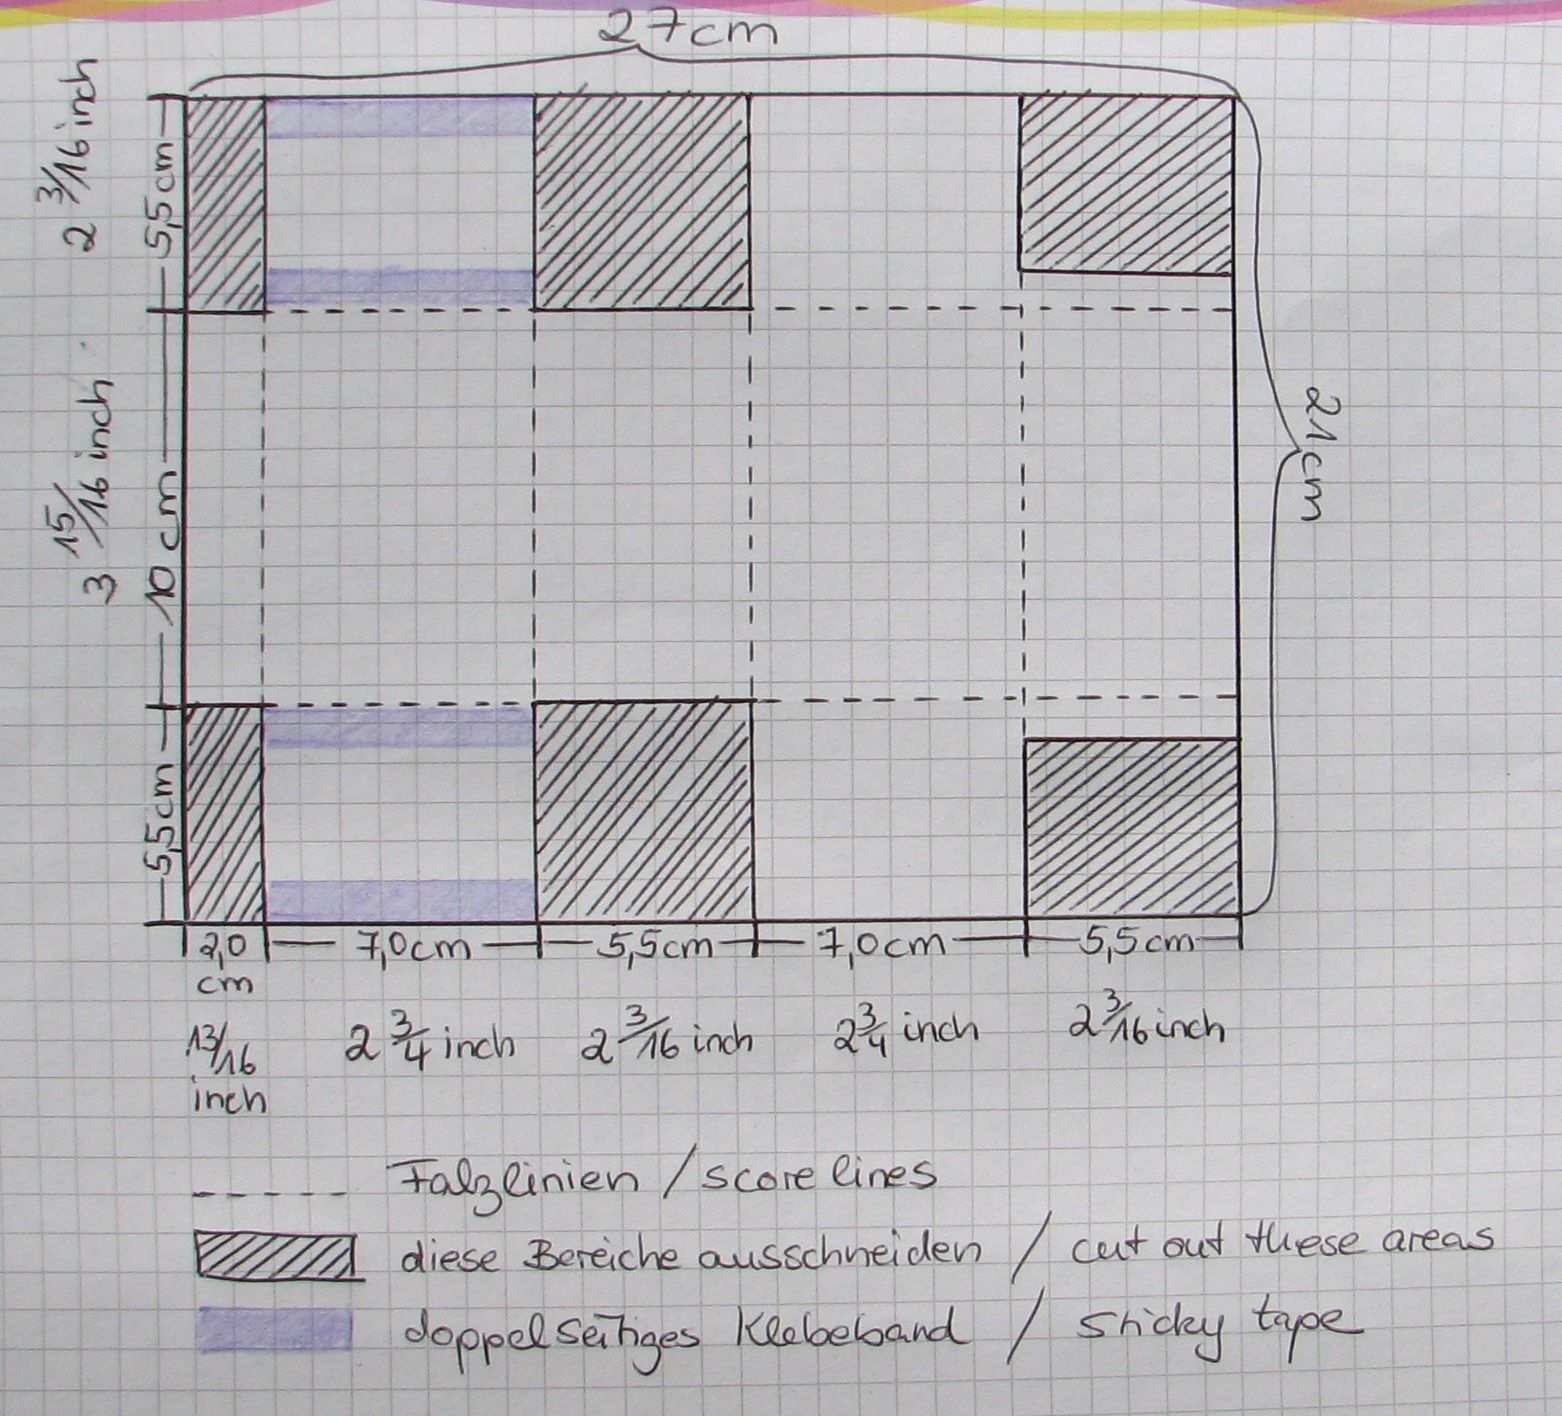 27cm
2 3/16 inch
5,5cm
21cm
3 15/16 inch
10 cm
5,5cm
2,0 cm
7,0cm
5,5cm
7,0cm
5,5cm
13/16 inch
2 3/4 inch
2 3/16 inch
2 3/4 inch
2 3/16 inch
Falzlinien / score lines
diese Bereiche ausschneiden / cut out these areas
doppelseitiges Klebeband / sticky tape